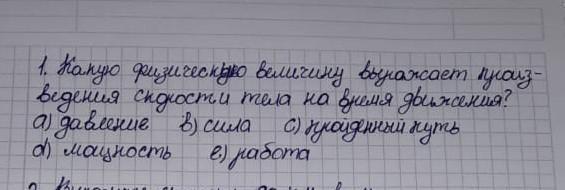 1. Какую физическую величину выражает произ-
ведения скорости тела на время движения?
а) давление в) сила с) пройденный путь
d) мощность е) работа